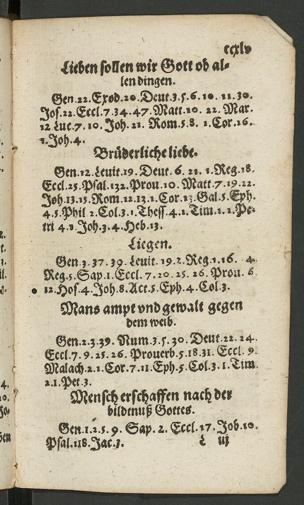 ccxlv
Lieben sollen wir Gott ob al-
len dingen.
Gen.22.Exod.20.Deut.3.5.6.10.11.30.
Jos.22.Eccl.7.34.47.Matt.10.22.Mar.
12 Luc.7.10.Joh.21.Rom.5.8.1.Cor.16.
1.Joh.4.
Brüderliche liebe.
Gen.12.Leuit.19.Deut.6.21.1.Reg.18.
Eccl.25.Psal.132.Prou.10.Matt.7.19.22.
Joh.13.15.Rom.12.13.1.Cor.13.Gal.5.Eph.
4.5.Phil 2.Col.3.1.Thess 4.1.Tim.1.1.Pe-
tri 4.1.Joh.3.4.Heb.13.
Liegen.
Gen.3.37.39.Leuit.19.2.Reg.1.16. 4.
Reg.5.Sap.1.Eccl.7.20.25.26.Prou.6
12.Hos.4.Joh.8.Act.5.Eph.4.Col.3.
Mans ampt vnd gewalt gegen
dem weib.
Gen.2.3.39.Num.3.5.30.Deut.22.24.
Eccl.7.9.25.26.Prouerb.5.18.31.Eccl.9.
Malach.2.1.Cor.7.11.Eph.5.Col.3.1.Tim.
2.1.Pet.3.
Mensch erschaffen nach der
bildtnuß Gottes.
Gen.1.2.5.9.Sap.2.Eccl.17.Job.10.
Psal.118.Jac.3.